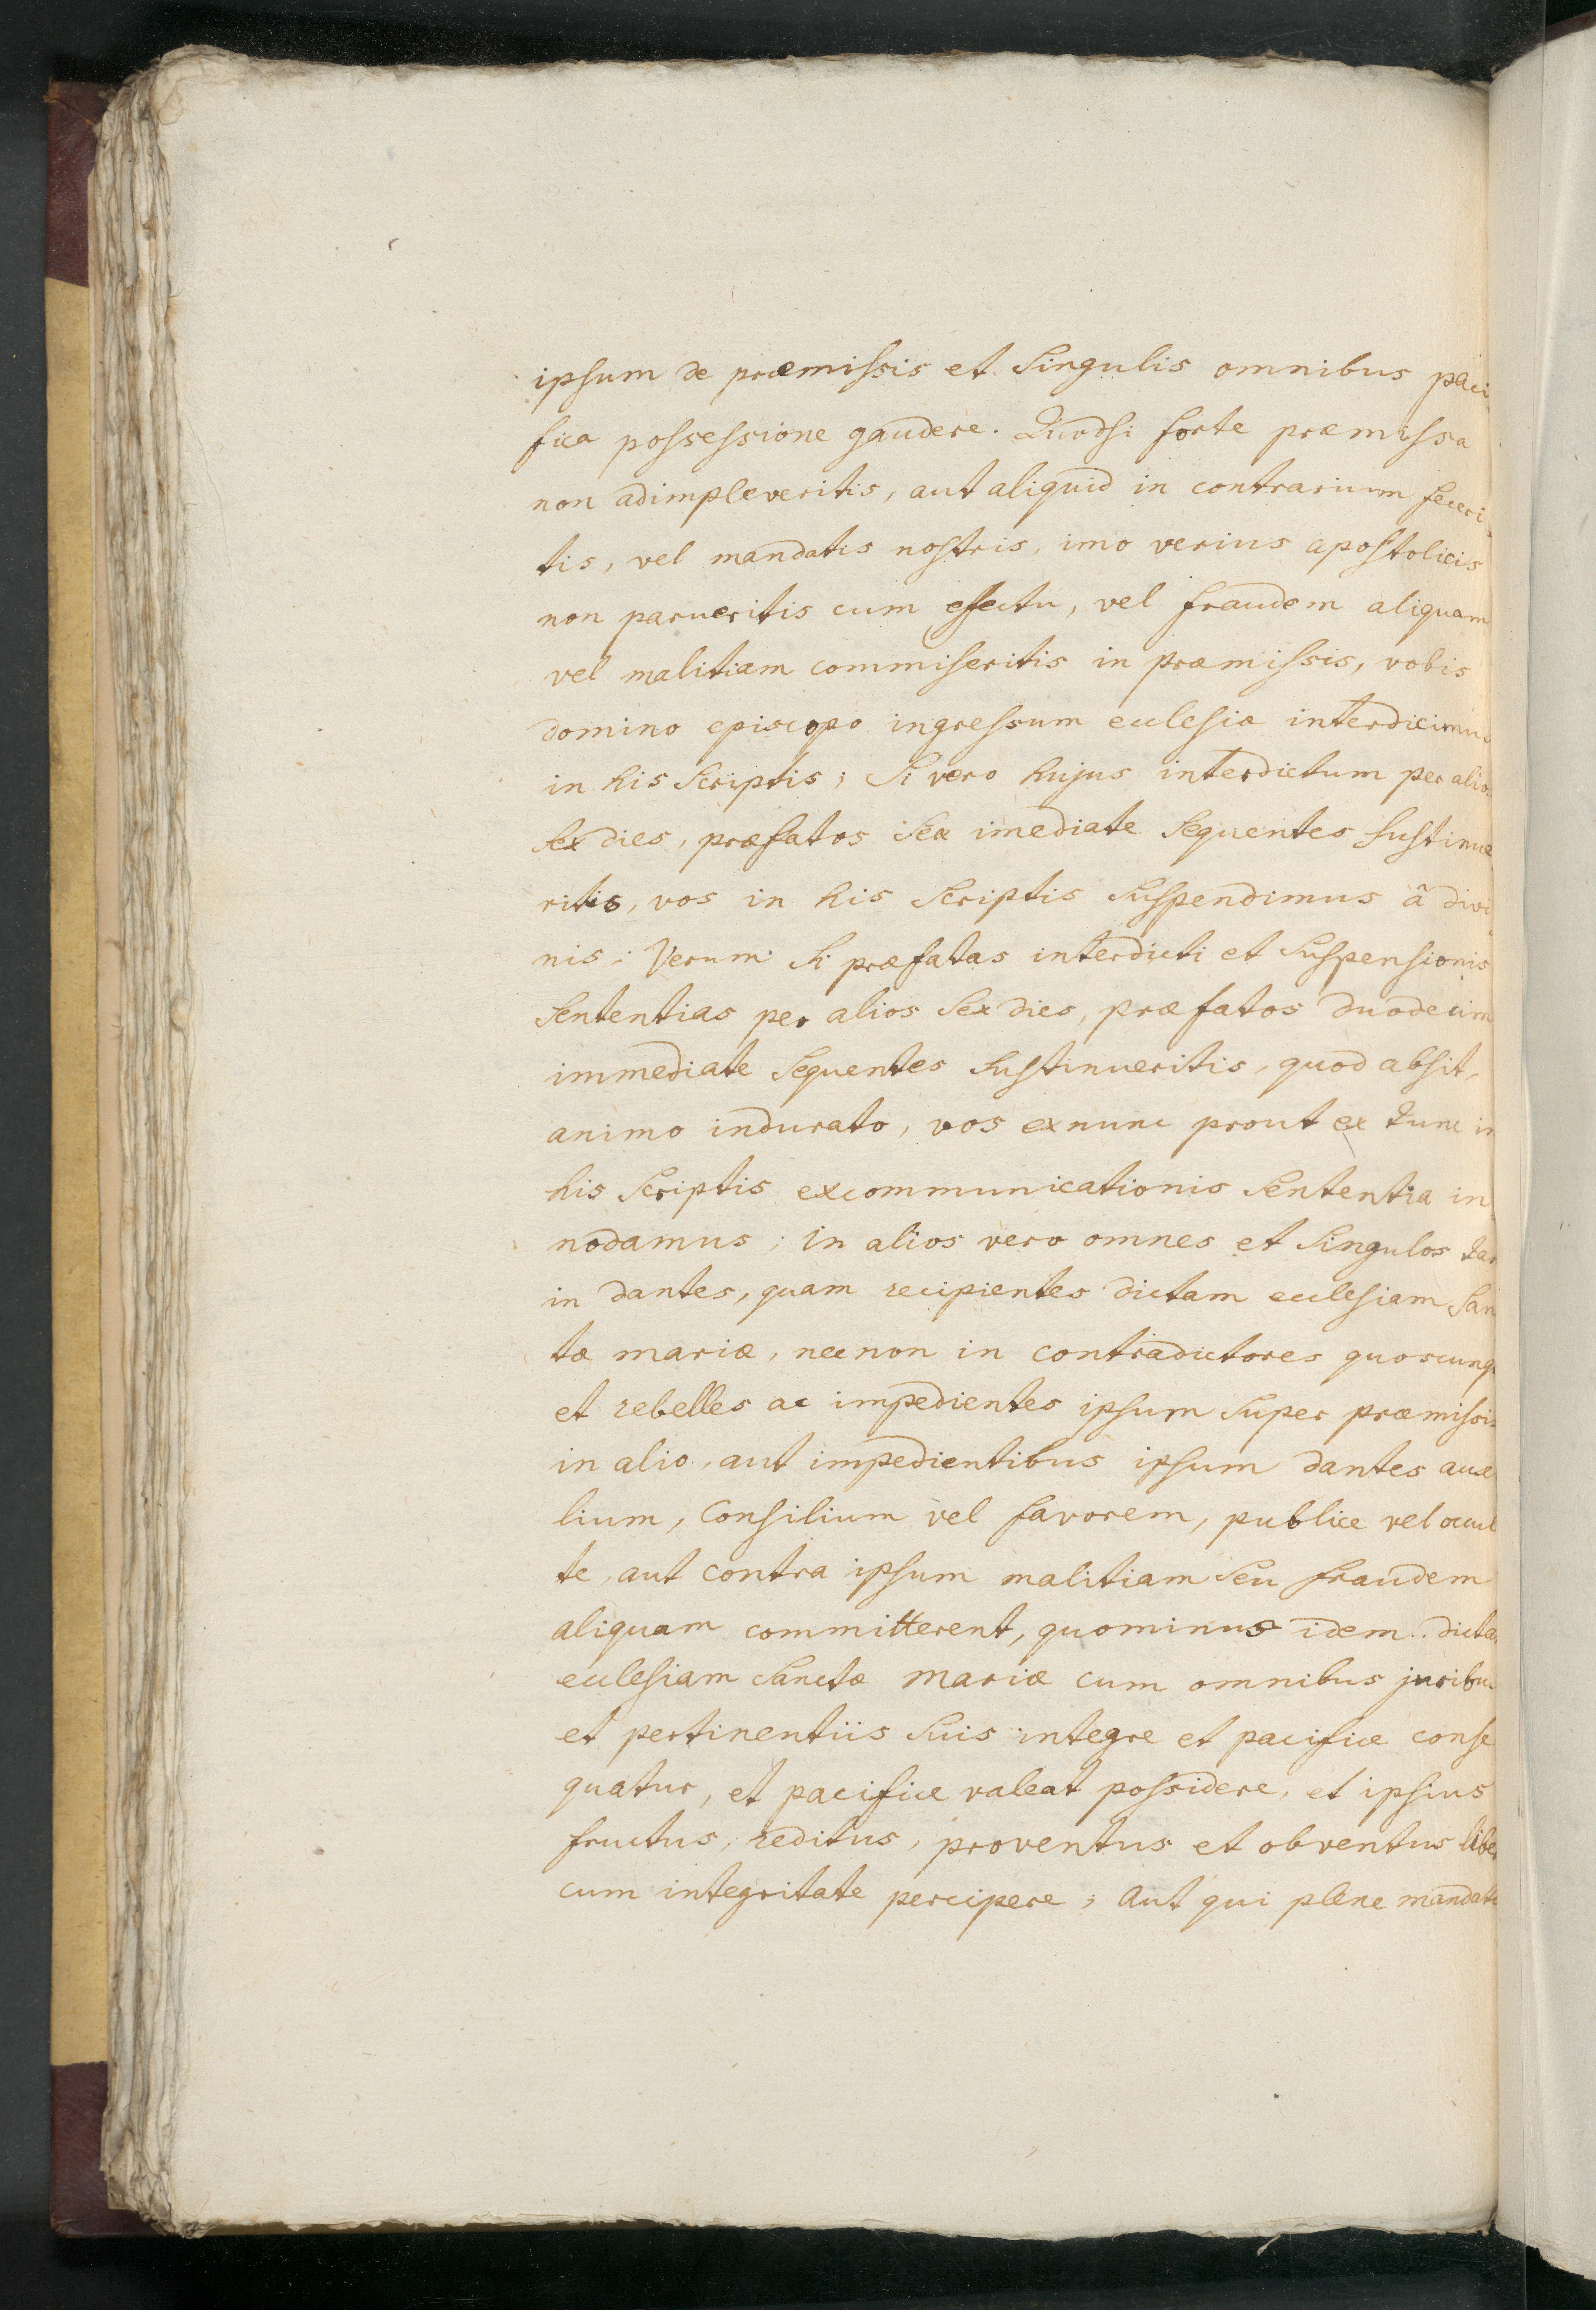 ipsum de præmissis et singulis omnibus paci
fica possessione gaudere. Quodsi forte præmissa
non adimpleveritis, aut aliquid in contrarium feceri
tis, vel mandatis nostris, imo verius apostolicis
non parueritis cum efectu, vel fraudem aliquam
vel malitiam commiseritis in præmissis, vobis
domino episcopo ingressum ecclesiæ interdicimus
in his scriptis; Si vero hujus interdictum per alios
sex dies, præfatos sex imediate sequentes sustinue
ritis, vos in his scriptis suspendimus â divi
nis: Verum si præfatas interdicti et suspensionis
sententias per alios sex dies, præfatos duodecim
immediate sequentes sustinueritis, quod absit,
animo indurato, vos ex nunc prout ex tunc in
his scriptis excommunicationis sententia in
nodamus; in alios vero omnes et singulos tam
in dantes, quam recipientes dictam ecclesiam San
tæ mariæ, necnon in contradictores quoscunq
et rebelles ac impedientes ipsum super præmissis
in alio, aut impedientibus ipsum dantes auxi
lium, Consilium vel favorem, publice vel occul
te, aut contra ipsum malitiam seu fraudem
aliquam committerent, quominus idem dictam
ecclesiam Sanctæ Mariæ cum omnibus juribus
et pertinentiis suis integre et pacifice conse
quatur, et pacifice valeat possidere, et ipsius
fructus, reditus, proventus et obventus liber
cum integritate percipere; Aut qui plene mandato